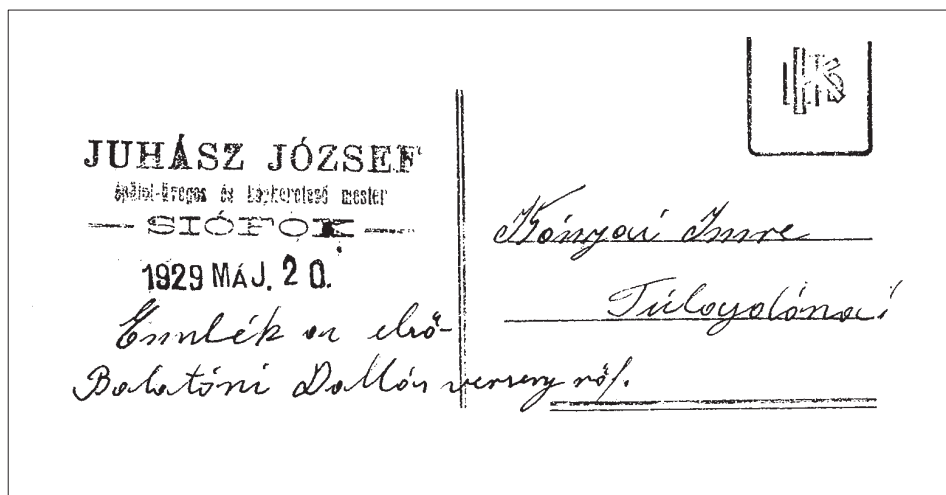 JUHÁSZ JÓZSEF
épület-üveges és képkeretező mester
SIÓFOK
1929 MÁJ. 20.
Emlék az első-
Balatóni Dallos verseny ről.
Kónyai Imre